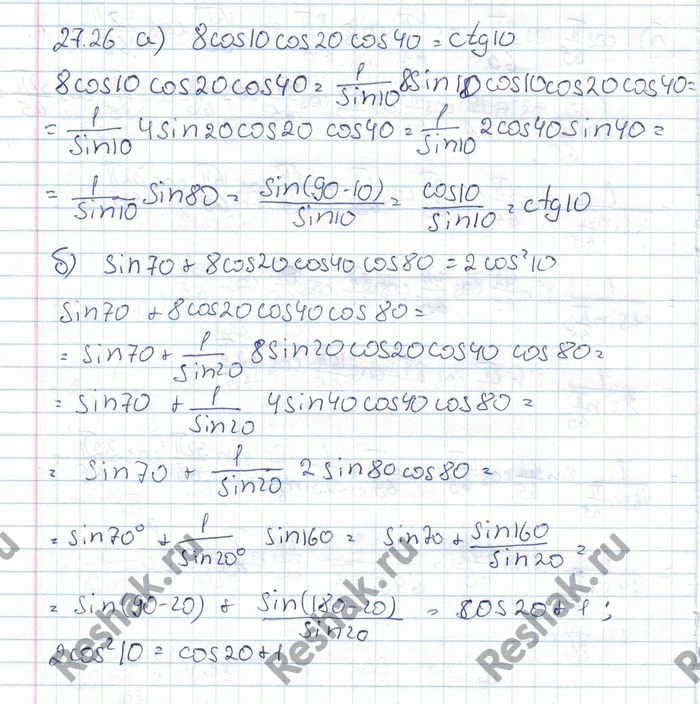 27.26 а) 8cos10 cos20 cos40 = ctg10
8cos10 cos20cos40 = 1/sin10 8sin10cos10cos20cos40 =
= 1/sin10 4sin20cos20 cos40 = 1/sin10 2cos40sin40 =
= 1/sin10 sin80 = sin(90-10)/sin10 = cos10/sin10 = ctg10
б) sin70 + 8cos20cos40cos80 = 2cos²10
sin70 + 8cos20cos40cos80 =
= sin70 + 1/sin20 8sin20cos20cos40 cos80 =
= sin70 + 1/sin20 4sin40cos40cos80 =
= sin70 + 1/sin20 2sin80cos80 =
= sin70° + 1/sin20° sin160 = sin70 + sin160/sin20 =
= sin(90-20) + sin(180-20)/sin20 = 8os20+1;
2cos²10 = cos20+1
Reshak.ru
Reshak.ru
Reshak.ru